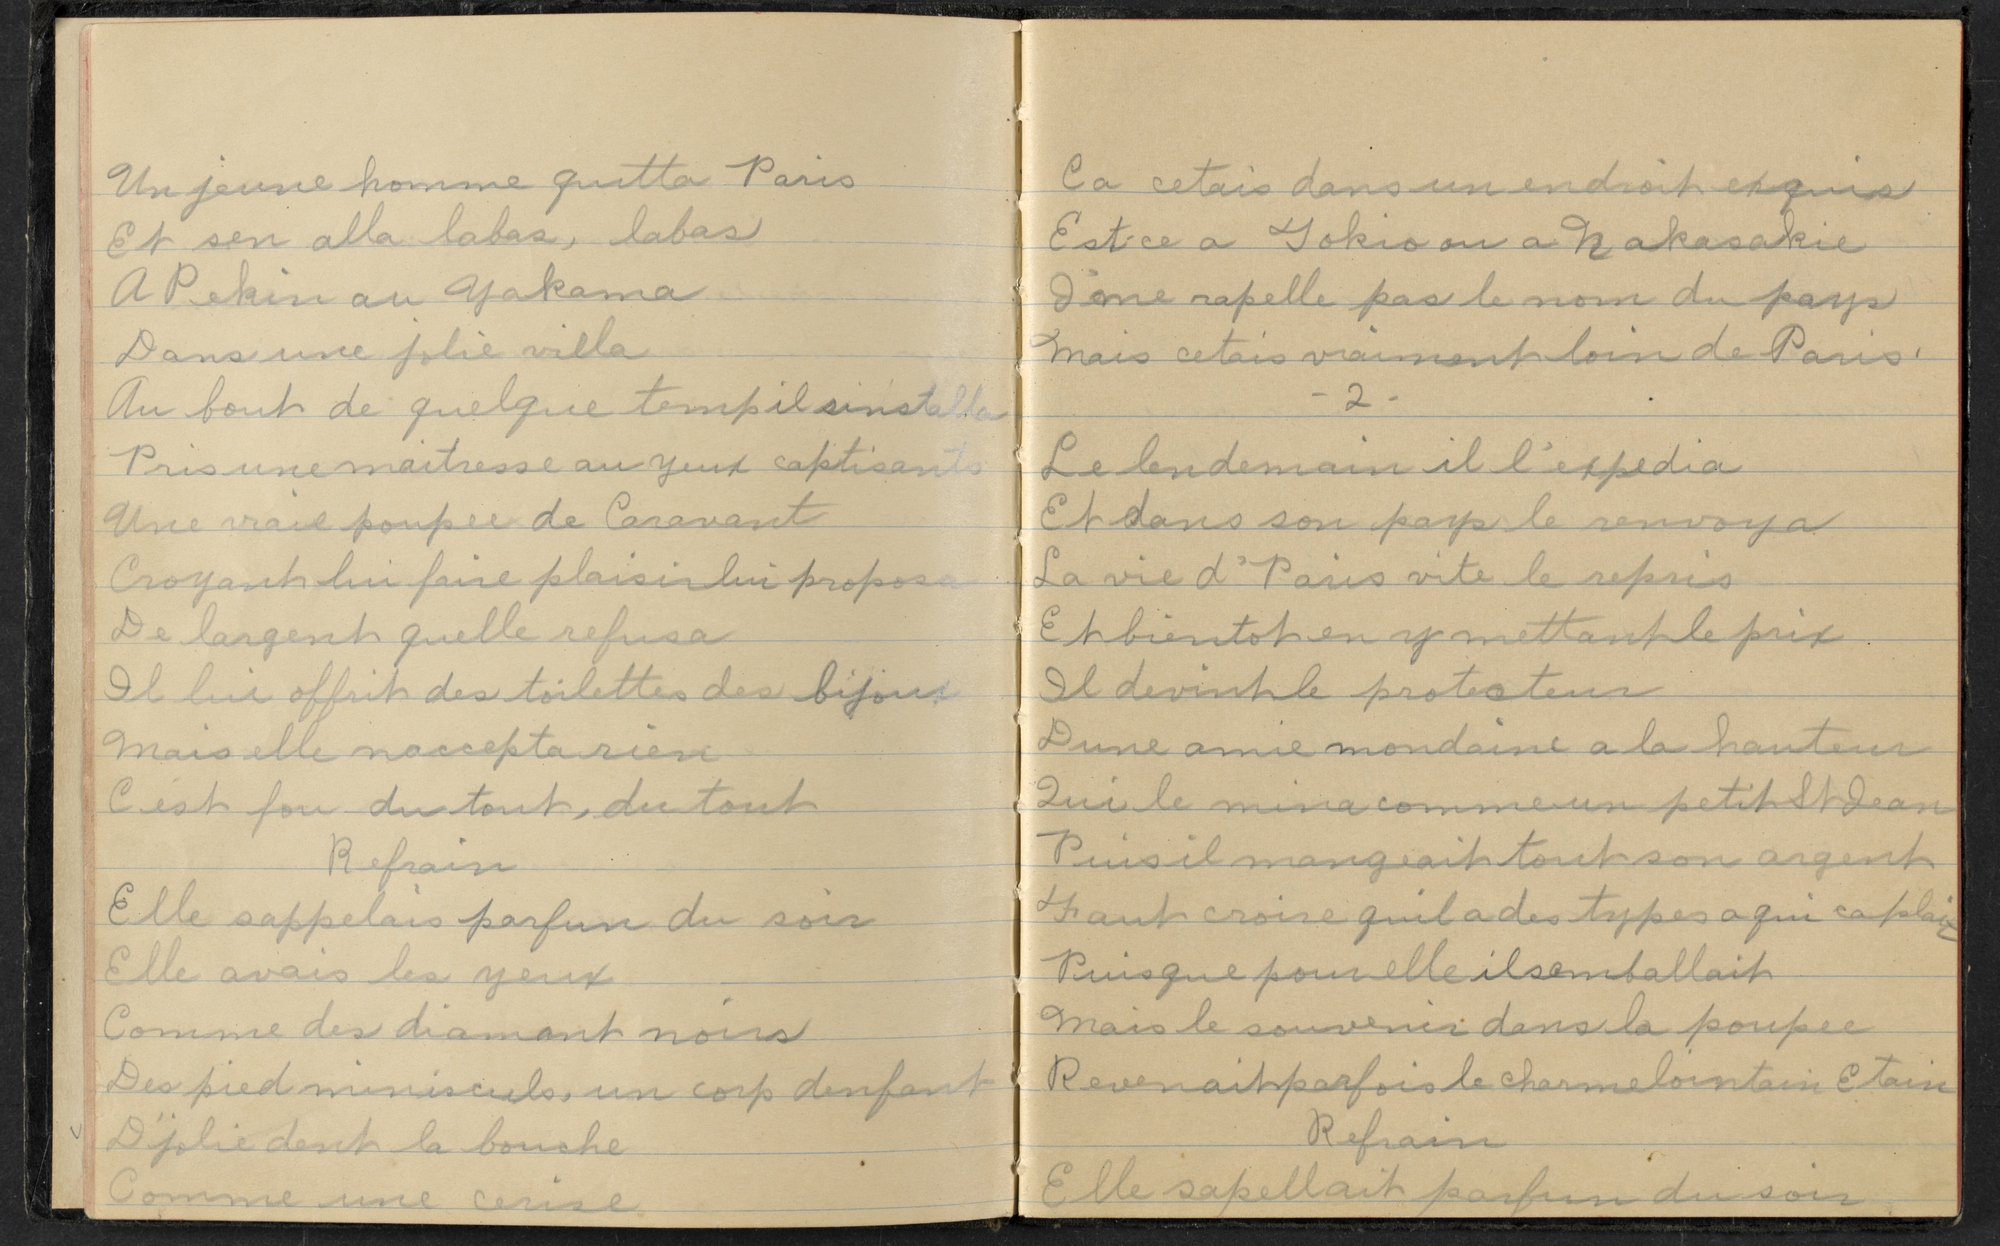 Un jeune homme quitta Paris
Et sen alla labas, labas
A Pekin au Yakama
Dans une jolie villa
Au bout de quelque temp il sinstalla
Pris une maitresse au yeux captisants
Une vraie poupee de Caravant
Croyant lui faire plaisir lui proposa
De largent quelle refusa
Il lui offrit des toilettes des bijoux
Mais elle naccepta rien
C'est fou du tout, du tout
Refrain
Elle sappelais parfun du soir
Elle avais les yeux
Comme des diamant noirs
Des pied miniscules, un corp denfant
D'jolie dent la bouche
Comme une cerise
Ca cetais dans un endroit exquis
Est-ce a Yokio ou a Nakasakie
J'me rapelle pas le nom du pays
Mais cetais vraiment loin de Paris.
- 2 -
Le lendemain il l'expedia
Et dans son pays le renvoya
La vie d'Paris vite le repris
Et bientot en y mettant le prix
Il devint le protecteur
Dune amie mondaine a la hauteur
Qui le mina comme un petit St Jean
Puis il mangeait tout son argent
Faut croire quil a des types a qui ca plait
Puisque pour elle il semballait
Mais le souvenir dans la poupee
Revenait parfois le charme lointain Etain
Refrain
Elle sapellait parfun du soir